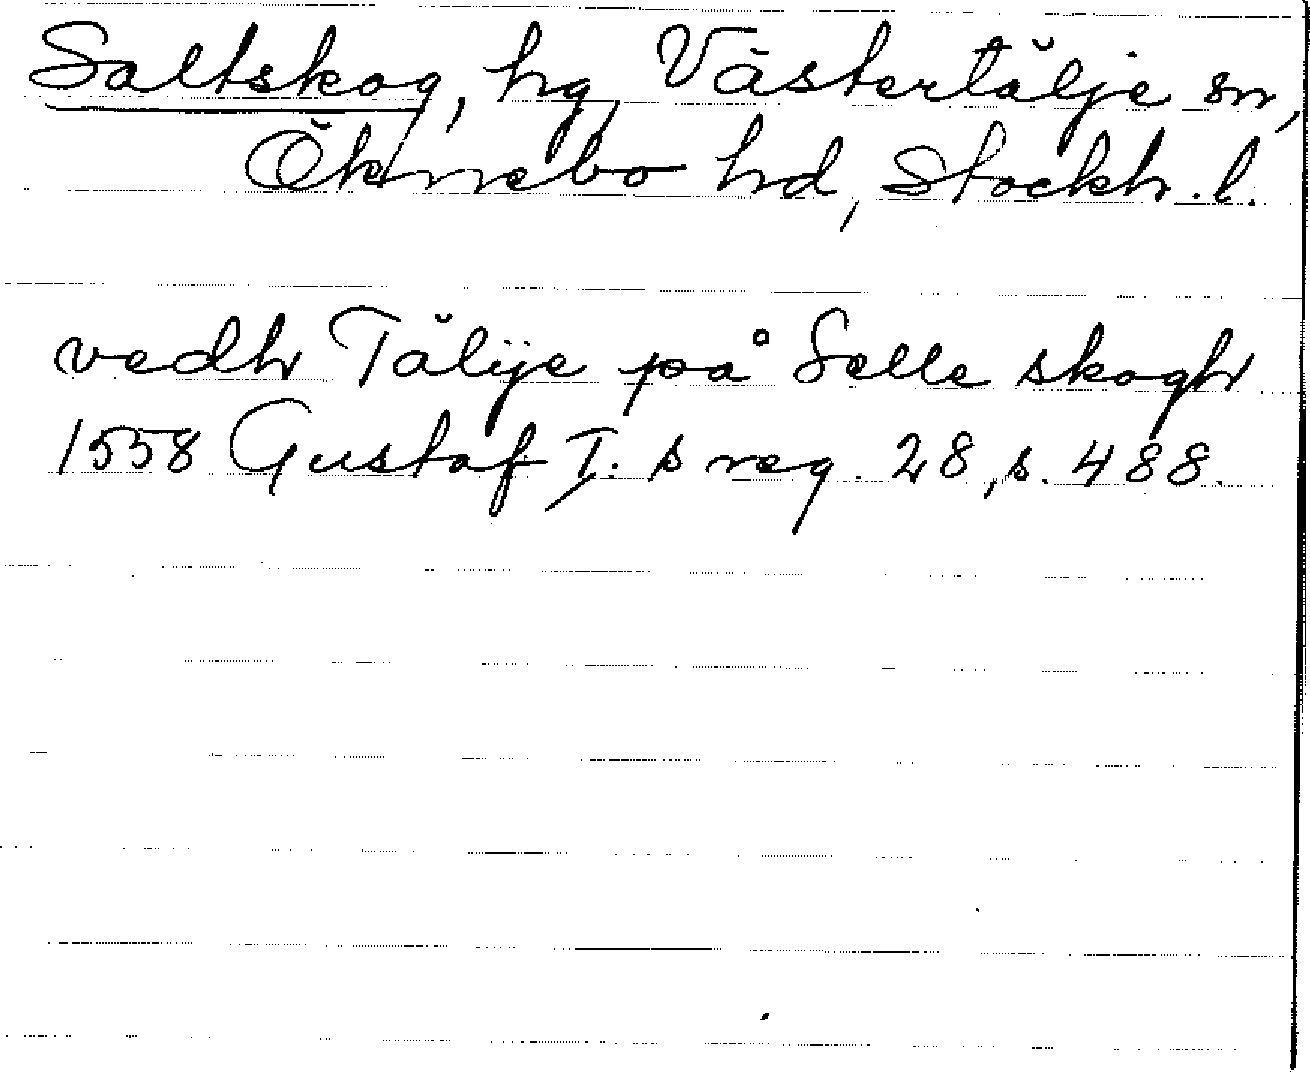 Saltskog, hg, Västertälje sn,
Öknebo hd, Stockh. l.
vedh Tälije på Salle skogh
1558 Gustaf I:s reg. 28, s. 488.